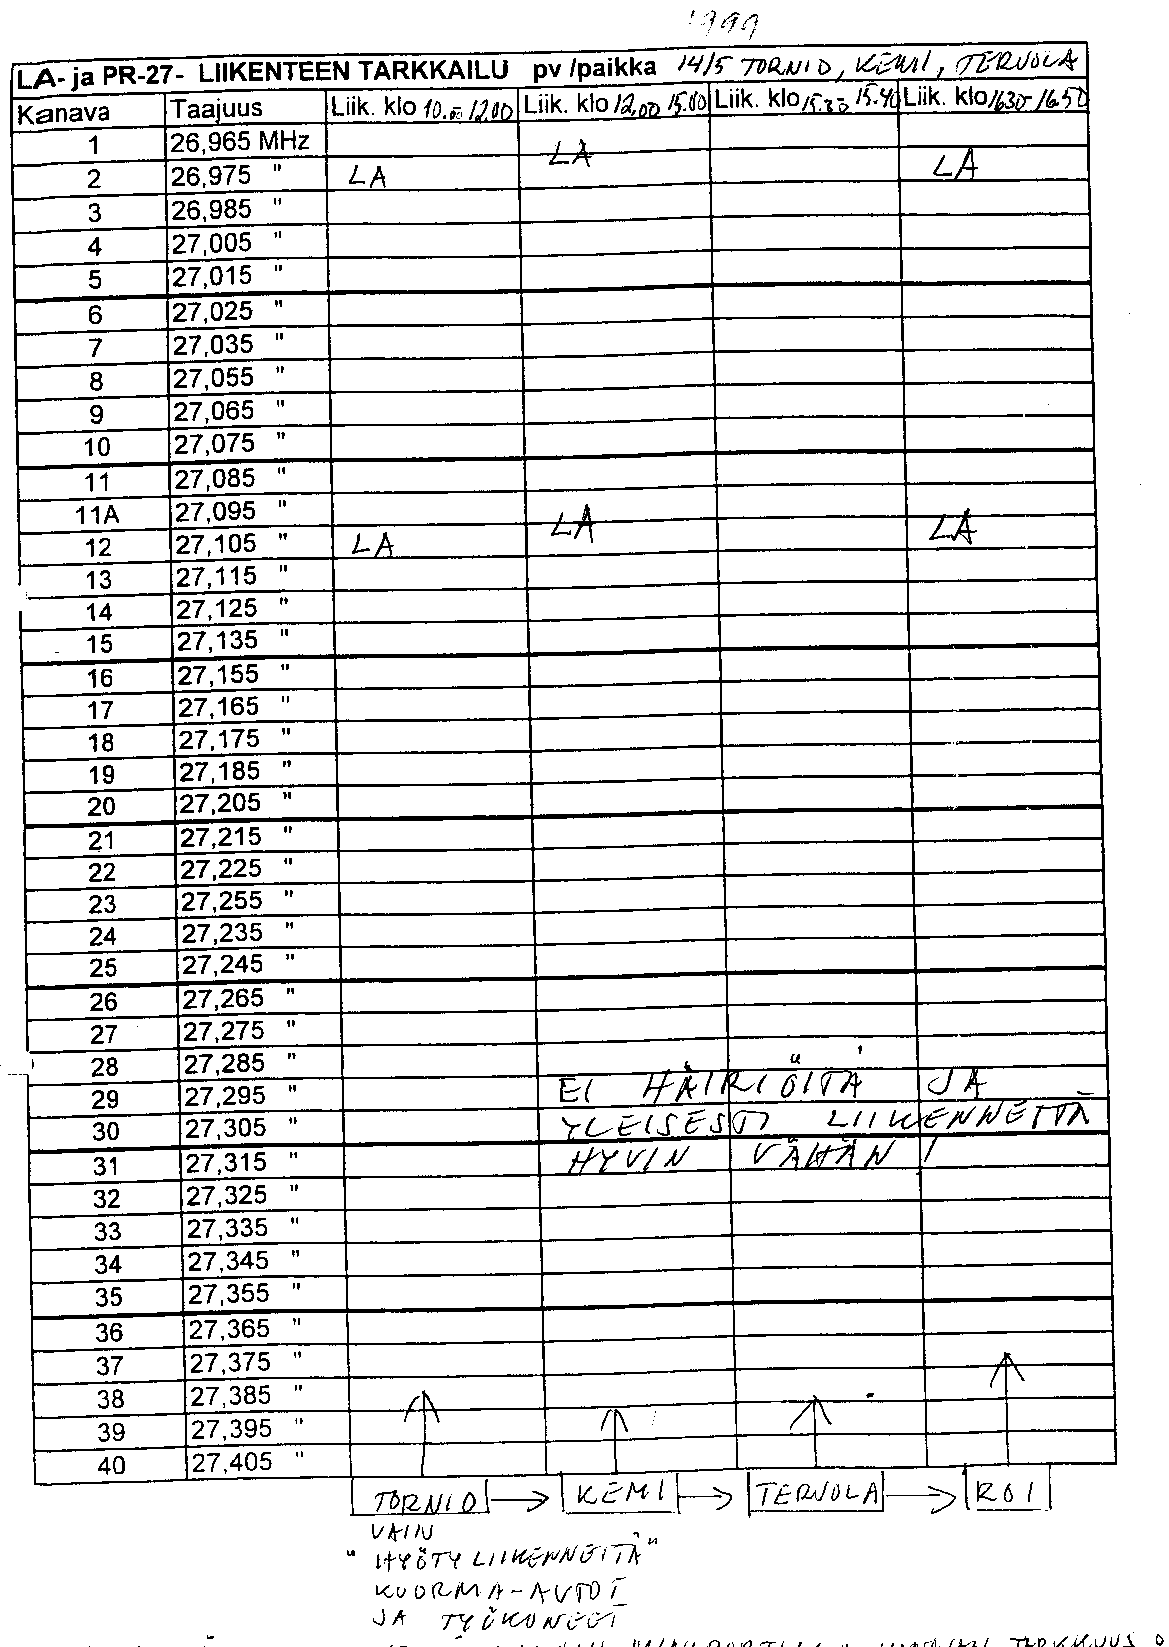 1999
LA- ja PR-27- LIIKENTEEN TARKKAILU pv /paikka 14/5 TORNIO, KEMI, TERVOLA
Kanava Taajuus Liik. klo 10.00 12.00 Liik. klo 12.00 15.00 Liik. klo 15.30 15.40 Liik. klo 1630-1650
1 26,965 MHz
2 26,975 " LA LA LA
3 26,985 "
4 27,005 "
5 27,015 "
6 27,025 "
7 27,035 "
8 27,055 "
9 27,065 "
10 27,075 "
11 27,085 "
11A 27,095 "
12 27,105 " LA LA LA
13 27,115 "
14 27,125 "
15 27,135 "
16 27,155 "
17 27,165 "
18 27,175 "
19 27,185 "
20 27,205 "
21 27,215 "
22 27,225 "
23 27,255 "
24 27,235 "
25 27,245 "
26 27,265 "
27 27,275 "
28 27,285 "
29 27,295 " EI HÄIRIÖITÄ JA
30 27,305 " YLEISESTI LIIKENNETTÄ
31 27,315 " HYVIN VÄHÄN !
32 27,325 "
33 27,335 "
34 27,345 "
35 27,355 "
36 27,365 "
37 27,375 "
38 27,385 "
39 27,395 "
40 27,405 "
TORNIO → KEMI → TERVOLA → ROI
VAIN
"HYÖTYLIIKENNETTÄ"
KUORMA-AUTOT
JA TYÖKONEET